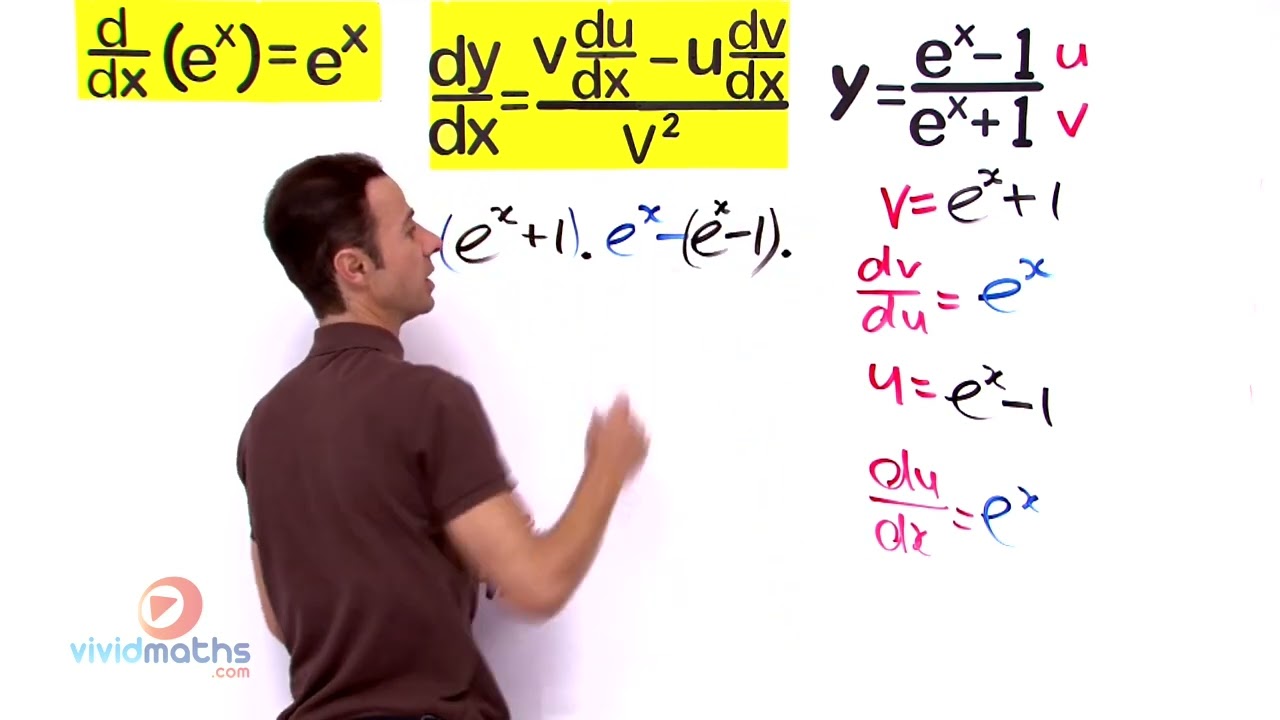 d/dx (eˣ) = eˣ
dy/dx = (v du/dx − u dv/dx) / v²
y = (eˣ − 1) / (eˣ + 1) u v
(eˣ + 1) . eˣ − (eˣ − 1) .
v = eˣ + 1
dv/du = eˣ
u = eˣ − 1
du/dx = eˣ
vividmaths
.com